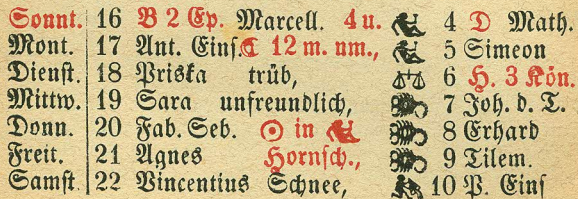 Sonnt. 16 B 2 Ep. Marcell. 4 u. 4 D Math.
Mont. 17 Ant. Eins. ☾ 12 m. nm., 5 Simeon
Dienst. 18 Priska trüb, ♎ 6 H. 3 Kön.
Mittw. 19 Sara unfreundlich, 7 Joh. d. T.
Donn. 20 Fab. Seb. ☉ in 8 Erhard
Freit. 21 Agnes Hornsch., 9 Tilem.
Samst. 22 Vincentius Schnee, 10 P. Eins